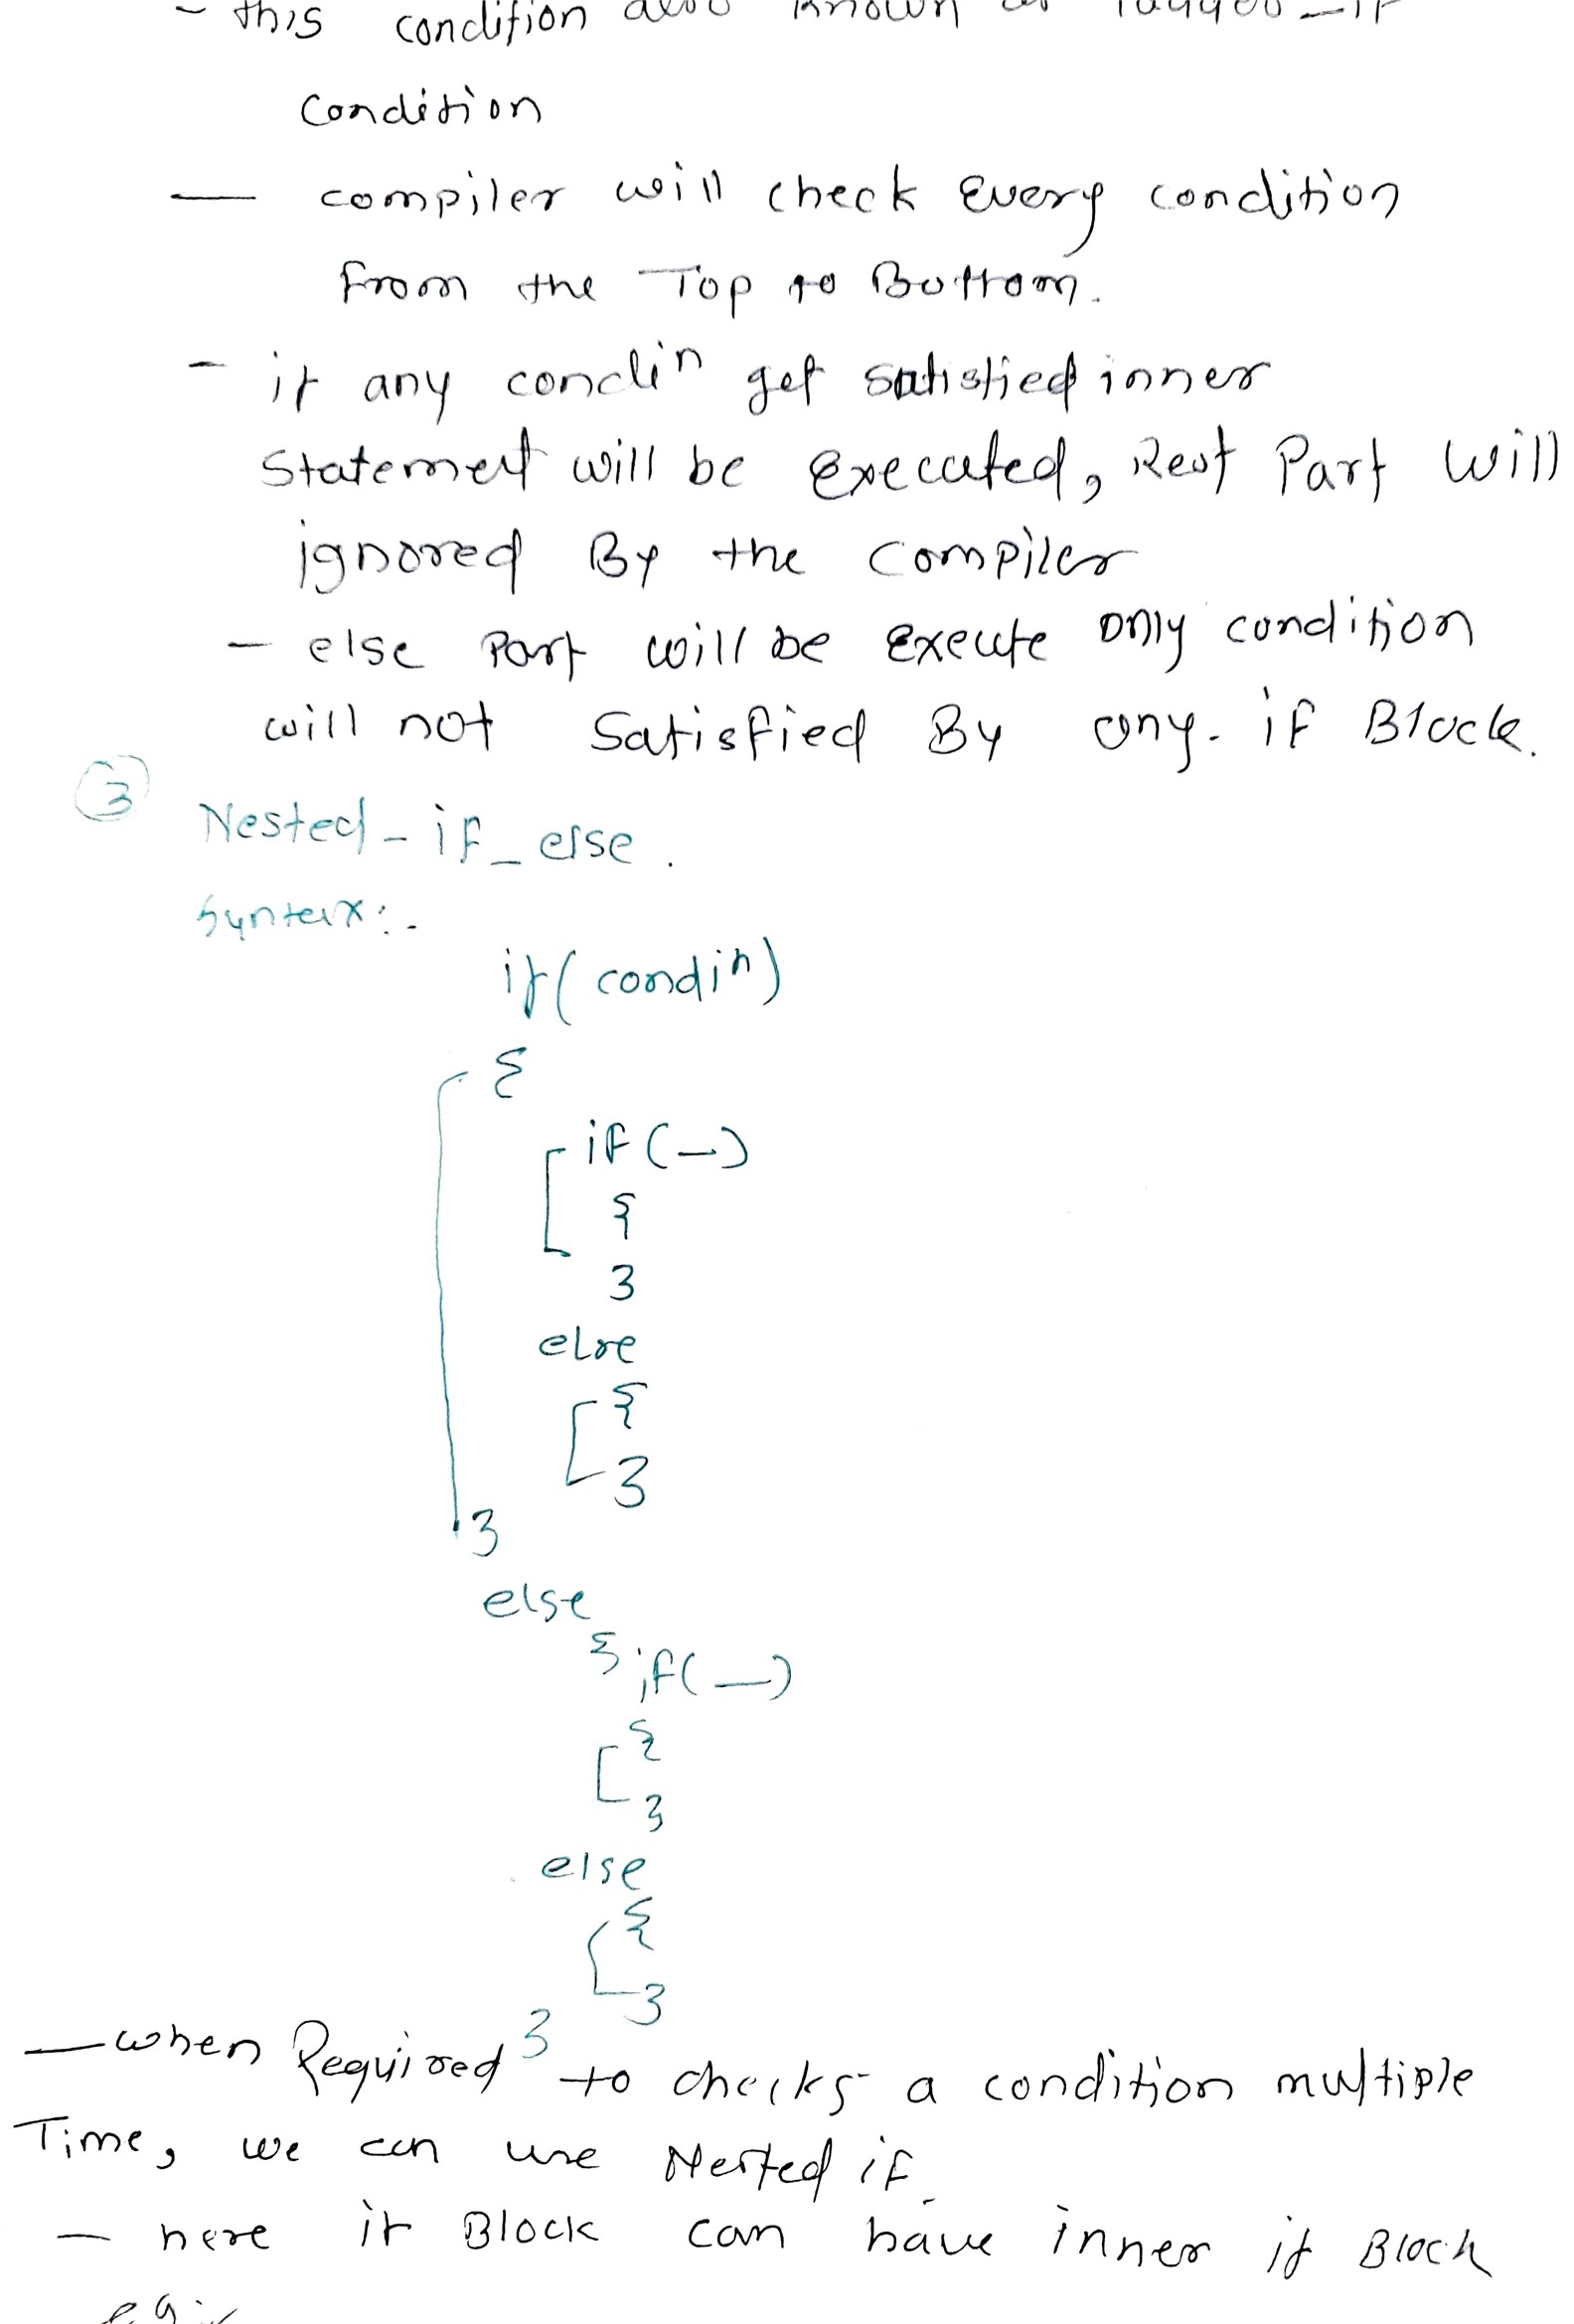 - this condition also known as
condition
- compiler will check Every condition
from the Top to Bottom.
- if any condin get satisfied inner
statement will be Executed, Rest Part Will
ignored By the compiler
- else Part will be Execute only condition
will not Satisfied By any. if Block.
③ Nested - if _ else.
Syntax:-
if( condin)
{
if (-)
{
}
else
{
}
}
else
{ if( - )
{
}
else
{
}
}
- when Required to checks a condition multiple
Time, we can use Nested if.
- here if Block can have inner if Block